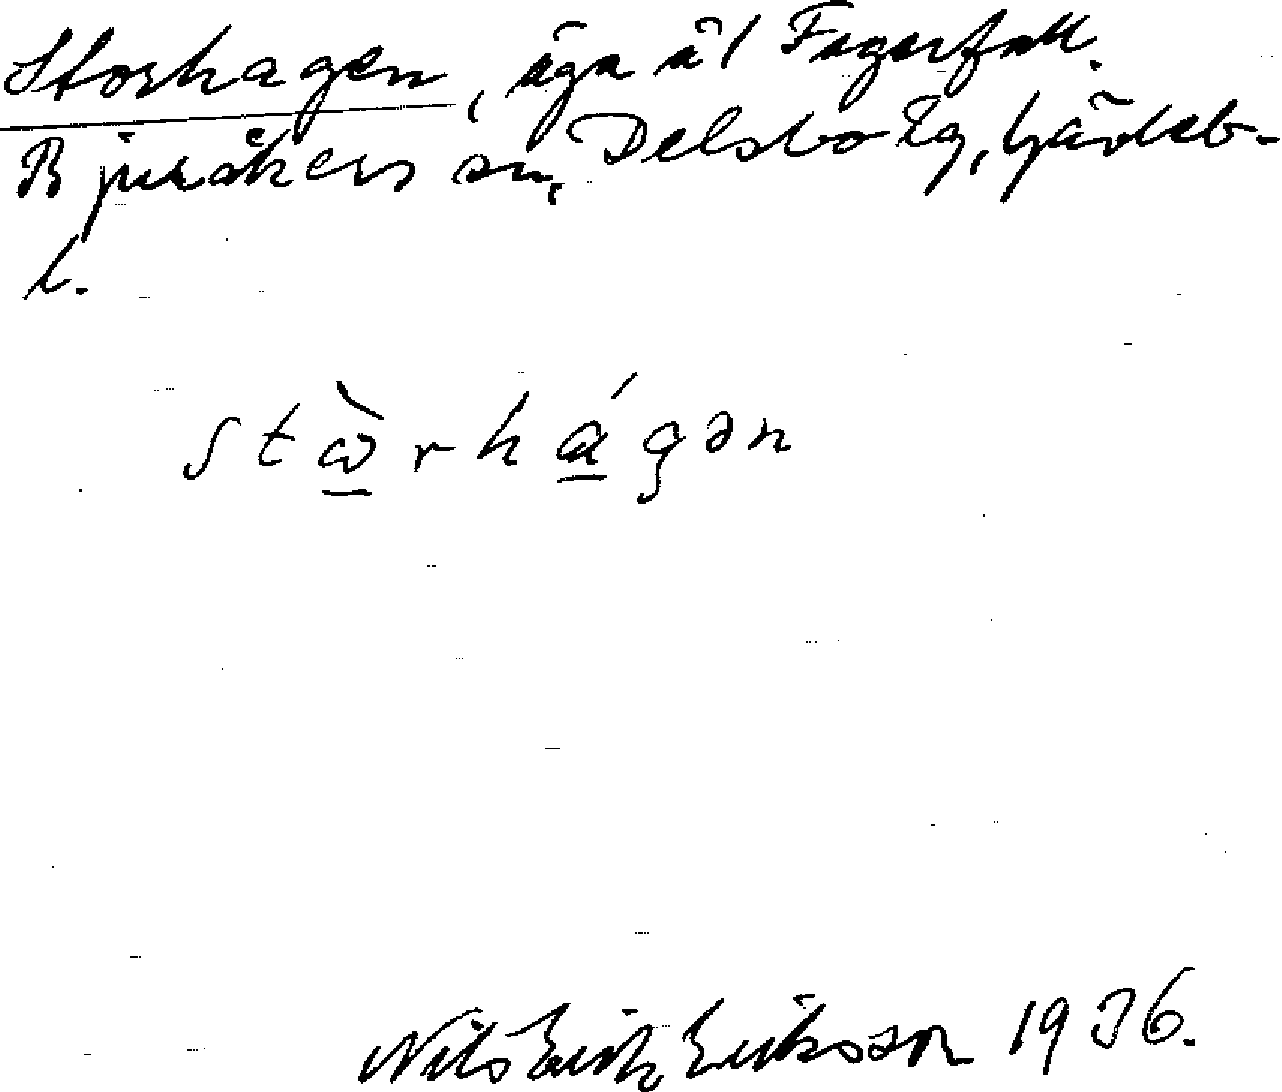 Storhagen, äga åt Fagerfall.
Bjuråkers sn, Delsbo tg, Gävleb-
l.
stὼ̱rhá̱gən
Nils Erik Eriksson 1936.